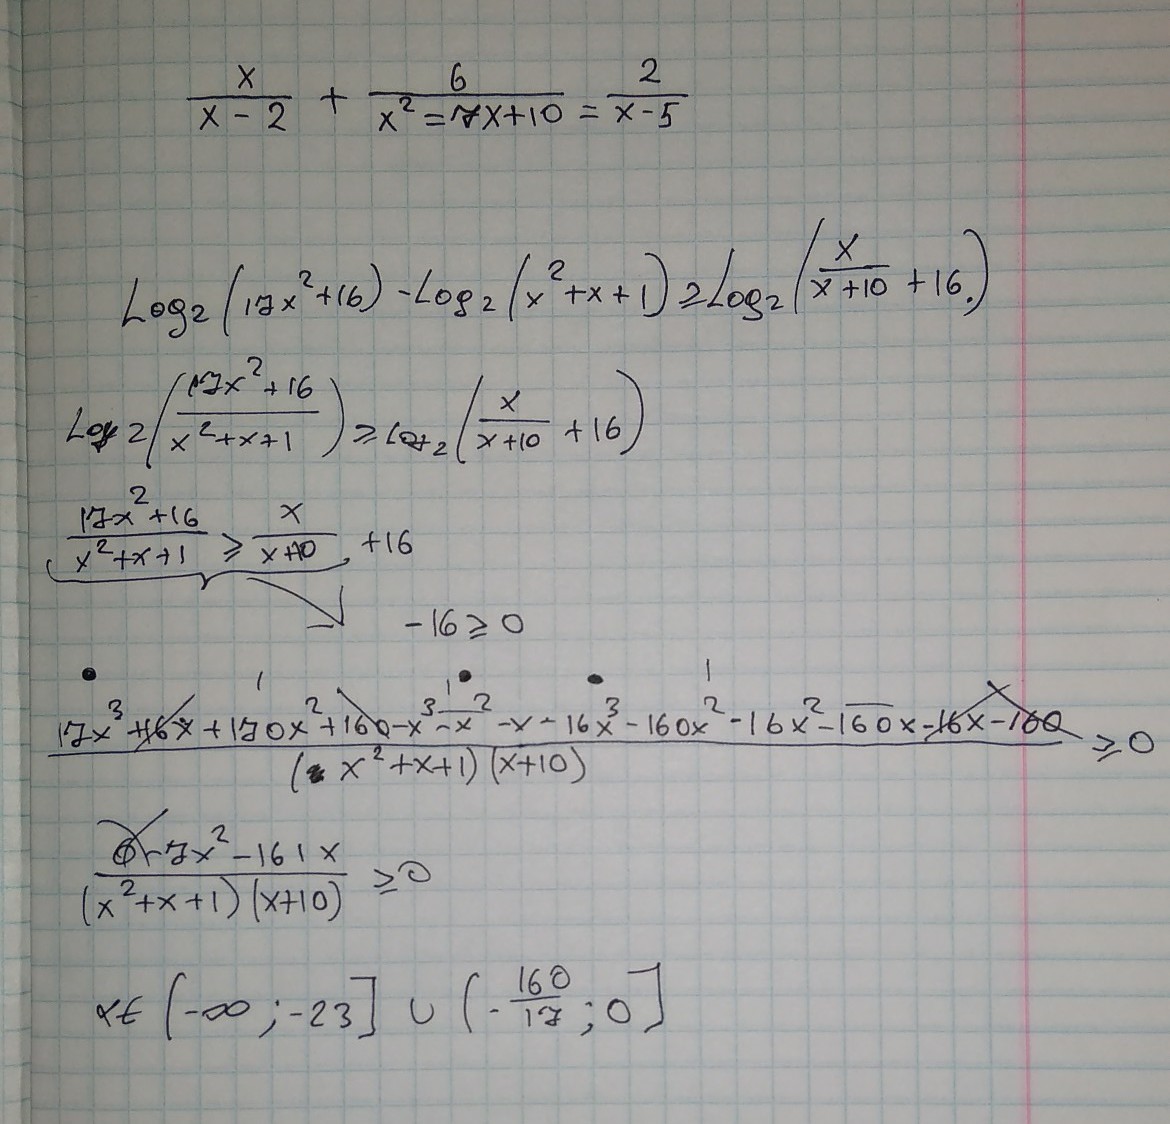 x/(x-2) + 6/(x²=7x+10) = 2/(x-5)
Log₂(17x²+16) - Log₂(x²+x+1) ≥ Log₂(x/(x+10) + 16.)
Log 2((17x²+16)/(x²+x+1)) ≥ Log₂(x/(x+10) + 16)
(17x²+16)/(x²+x+1) ≥ x/(x+10) +16
-16 ≥ 0
(17x³+16x+170x²+160-x³-x²-x-16x³-160x²-16x²-160x-16x-160)/((x²+x+1)(x+10)) ≥ 0
(-7x²-161x)/((x²+x+1)(x+10)) ≥ 0
x∈(-∞;-23] ∪ (-160/17;0]